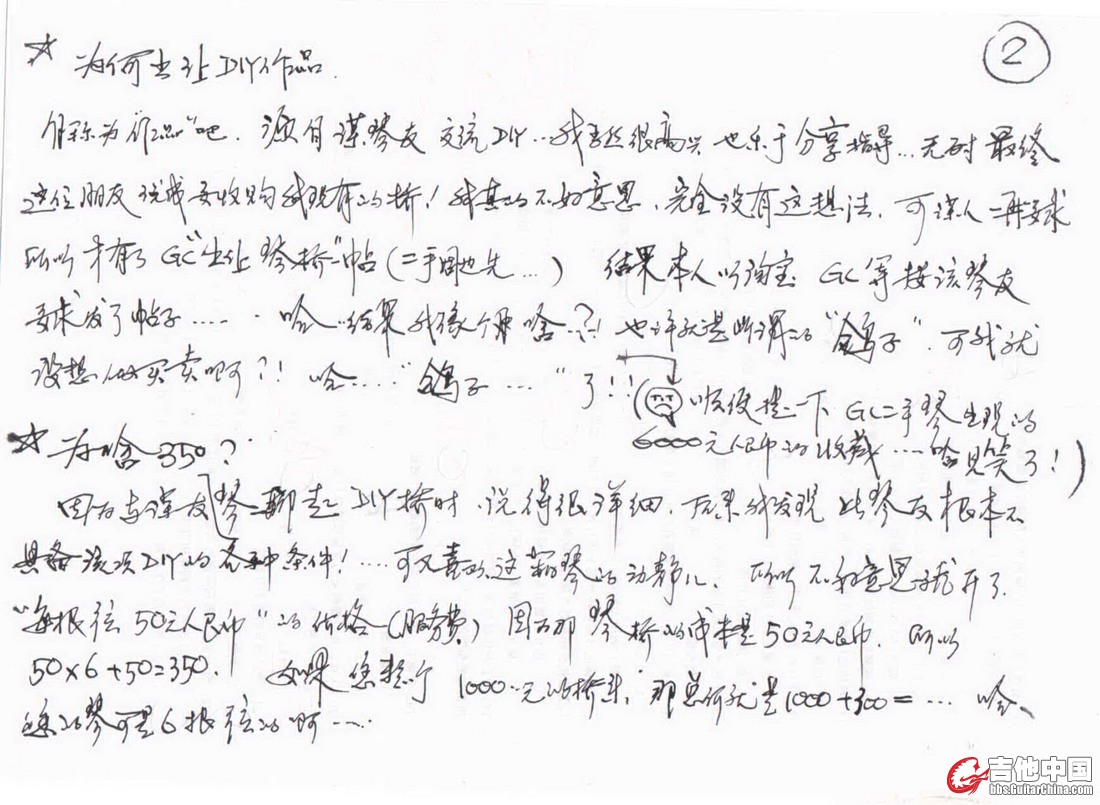 ②
☆ 为何出让DIY作品.
自称为"作品"吧. 源自某琴友 交流DIY...我当然很高兴 也乐于分享指导...无耐 最终
这位朋友说成要收购我现有的桥! 我真的不好意思、完全没有这想法. 可某人一再要求
所以才有了GC"出让琴桥"帖(二手周边先...) 结果本人以淘宝 GC 等按该琴友
要求发了帖子..... 哈..结果我像个 啥..?! 也许就是所谓的"鸽子". 可我就
没想做买卖啊?! 哈...."鸽子..."了!!
(顺便提一下GC二手琴出现的
6000元人民币的收藏...哈见笑了!)
☆ 为啥350?
因为与该友琴聊起DIY桥时.说得很详细.后来我发现 此琴友根本不
具备该项DIY的各种条件!....可又喜欢这 琴的动静儿. 所以不好意思我开了
"每根弦50元人民币"的价格(服务费) 因为那琴桥的成本是50元人民币. 所以
50×6+50=350. 如果您整个1000元的桥来,那总价就是1000+300=... 哈、
您的琴可是6根弦的啊....
吉他中国
bbs.GuitarChina.com